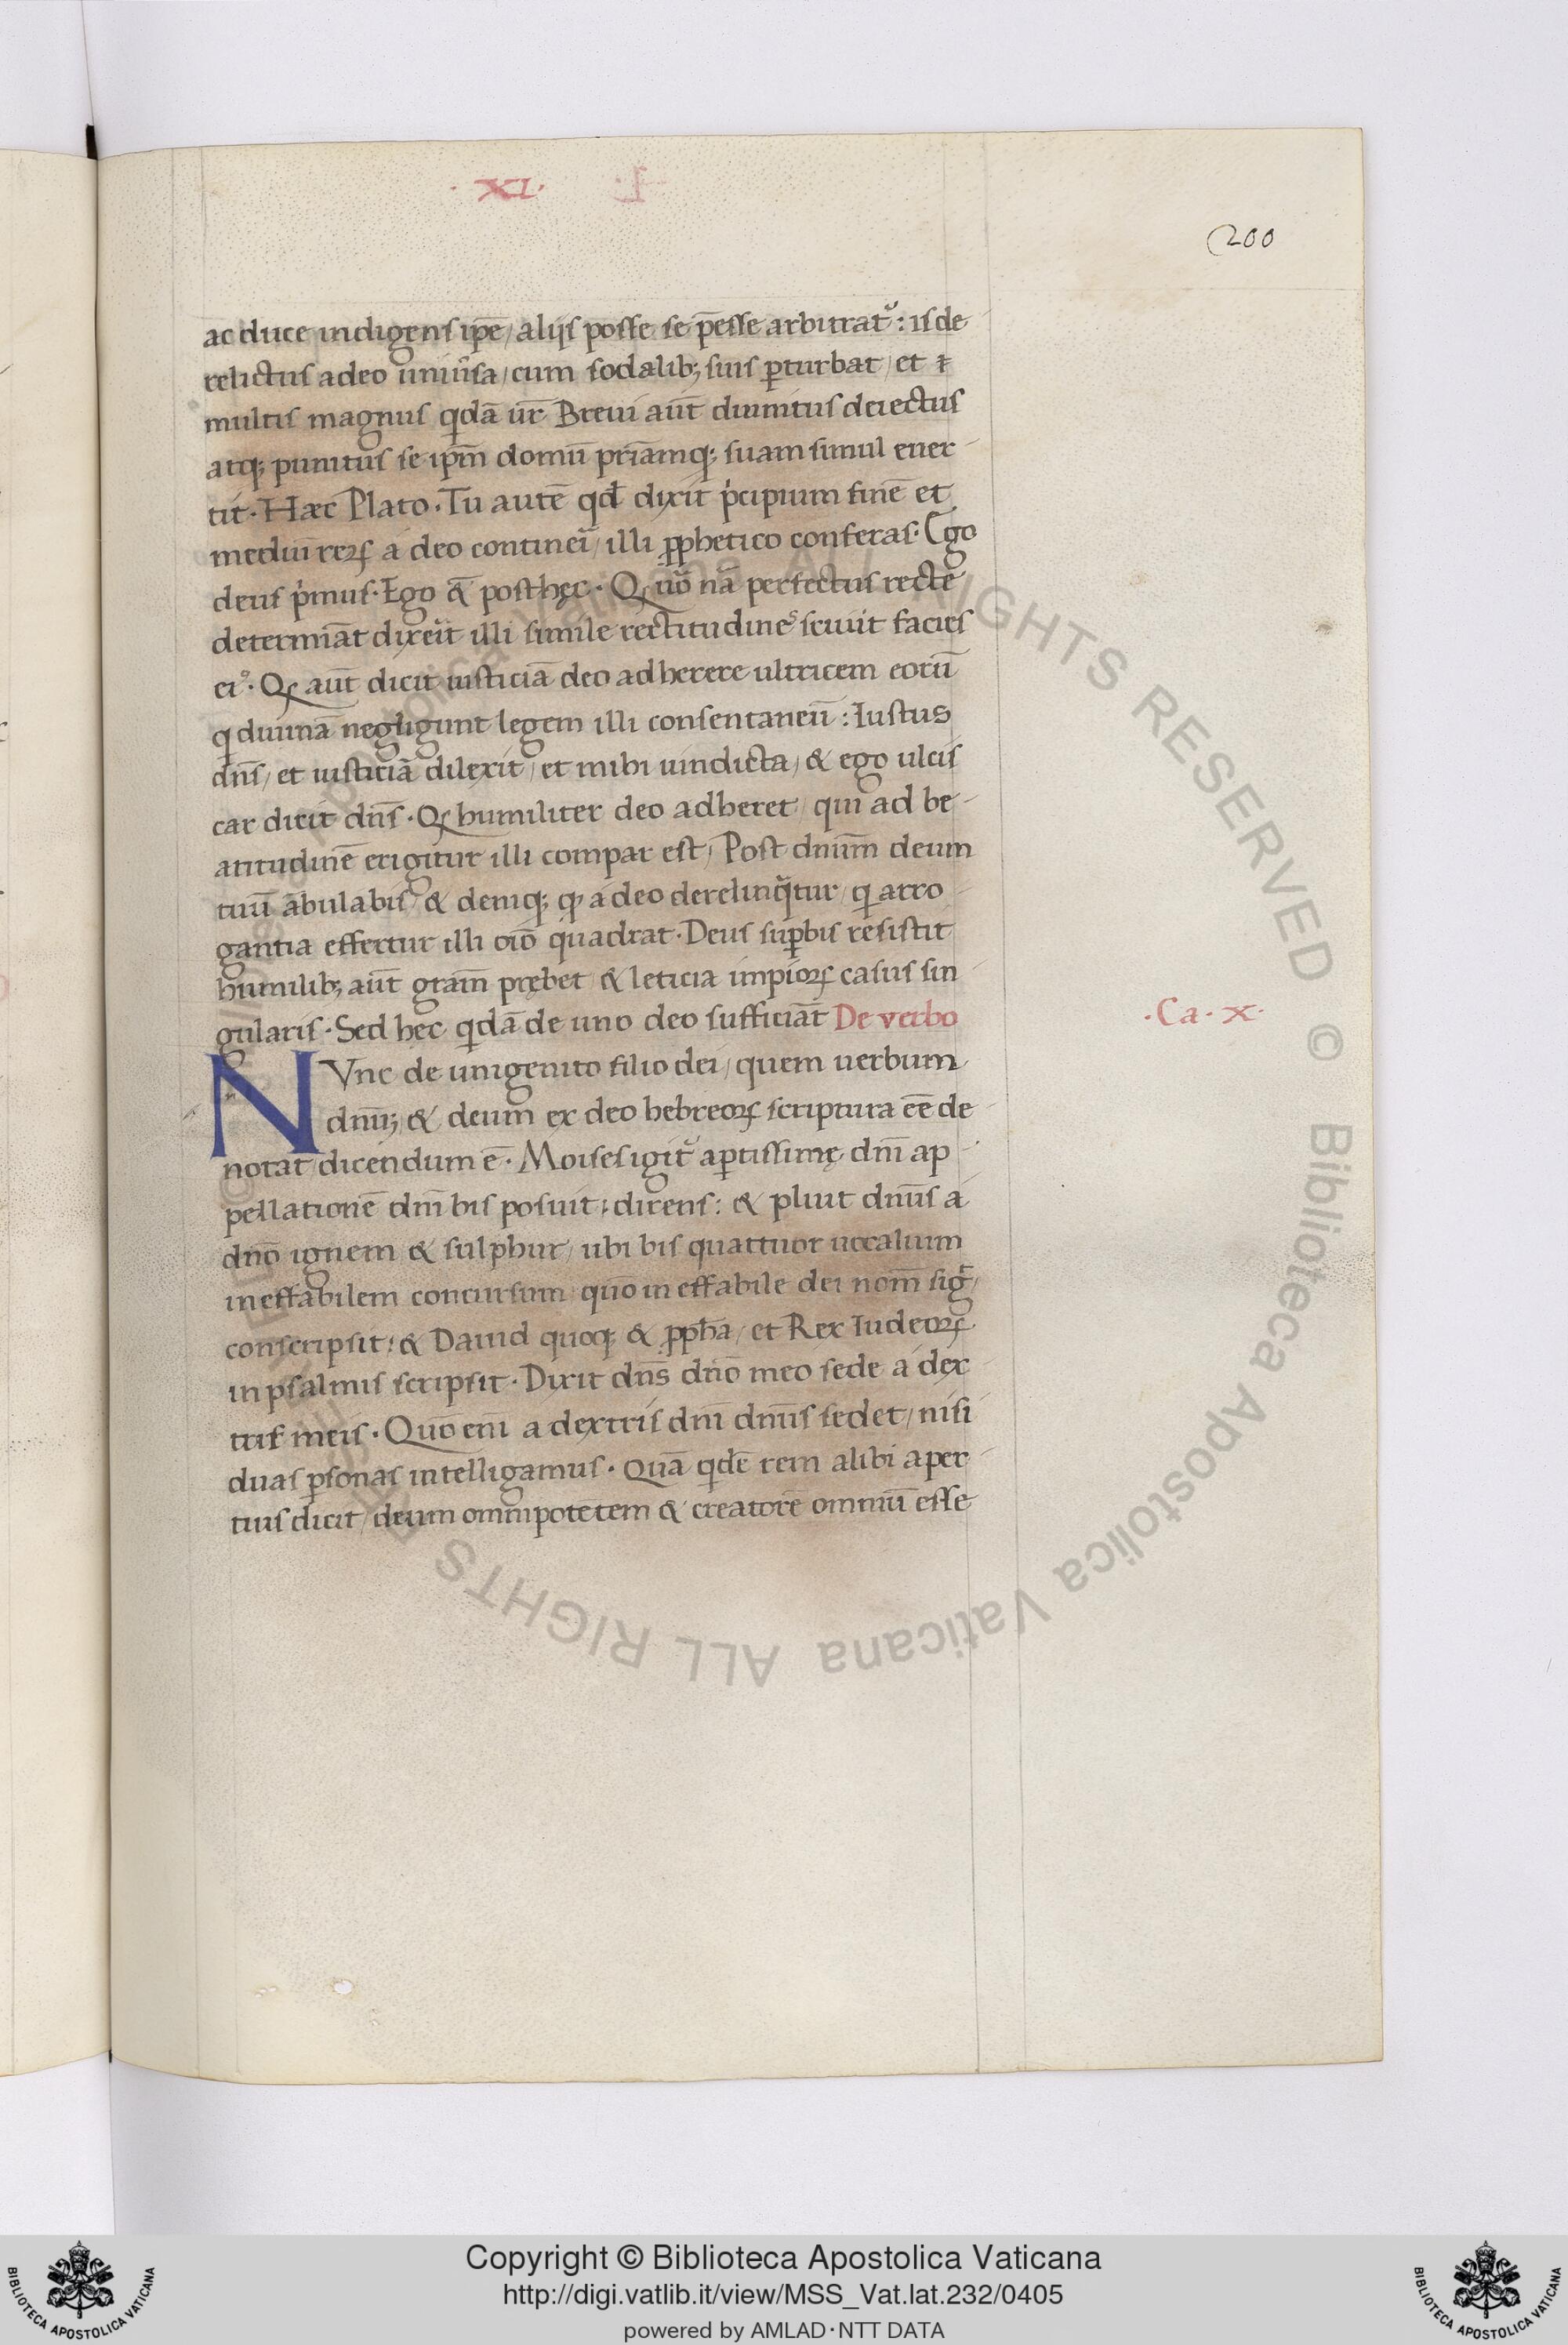 · XI ·
200
ac duce indigens ip̄e / alijs posse se p̄esse arbitrat᷑ : is de
relictus a deo uniu͛sa / cum sodalib; suis ꝑturbat / et ⁊
multis magnus qdā ur̄ Breui aūt diuinitus deiectus
atq; punitus se ip̄m domū pr̄iamq; suam simul euer
tit · Hæc Plato · Tu autē qđ dixit pͥcipium finē et
mediū reꝝ a deo contineri᷑ / illi ꝓphetico conferas · Ego
deus pͥmus · Ego & posthęc · Quō nā perfectus recte
determīat dixeͬit illi simile rectitudinēs sciuit facies
eiꝰ · Qꝫ aūt dicit iusticiā deo adherere ultricem eorū
q diuinā negligunt legem illi consentaneū : Iustus
dn̄s / et iusticiā dilexit / et mihi uindicta / & ego ulcis
car dicit dn̄s · Qꝫ humiliter deo adheret / qui ad be
atitudinē erigitur illi compar est / Post dnīm deum
tuū ābulabis / & deniq; ꝙ a deo derelinqͣtur / qi arro
gantia effertur illi oīo quadrat · Deus suꝑbis resistit
humilib; aūt grām prębet & leticia impioꝝ casus sin
gularis · Sed hęc qdā de uno deo sufficiāt De verbo
· Ca · X ·
NVnc de unigenito filio dei / quem uerbum
dnū; & deum ex deo hebreoꝝ scriptura eē de
notat / dicendum ē · Moises igit᷑ aꝑtissimę dnī ap
pellationē dnī bis posuit : dicens : & pluit dnūs a
dnō ignem & sulphur / ubi bis quattuor uocalium
ineffabilem concursum quo ineffabile dei nom̄ sigͬ /
conscripsit : & Dauid quoq; & ꝓph̄a / et Rex Iudeoꝝ
in psalmis scripsit · Dixit dn̄s dnō meo sede a dex
tris meis · Quō enī a dextris dnī dnūs sedet / nisi
duas ꝑsonas intelligamus · Quā qdē rem alibi aper
tius dicit / deum omnipotētem & creatorē omniū esse
Copyright © Biblioteca Apostolica Vaticana
http://digi.vatlib.it/view/MSS_Vat.lat.232/0405
powered by AMLAD·NTT DATA